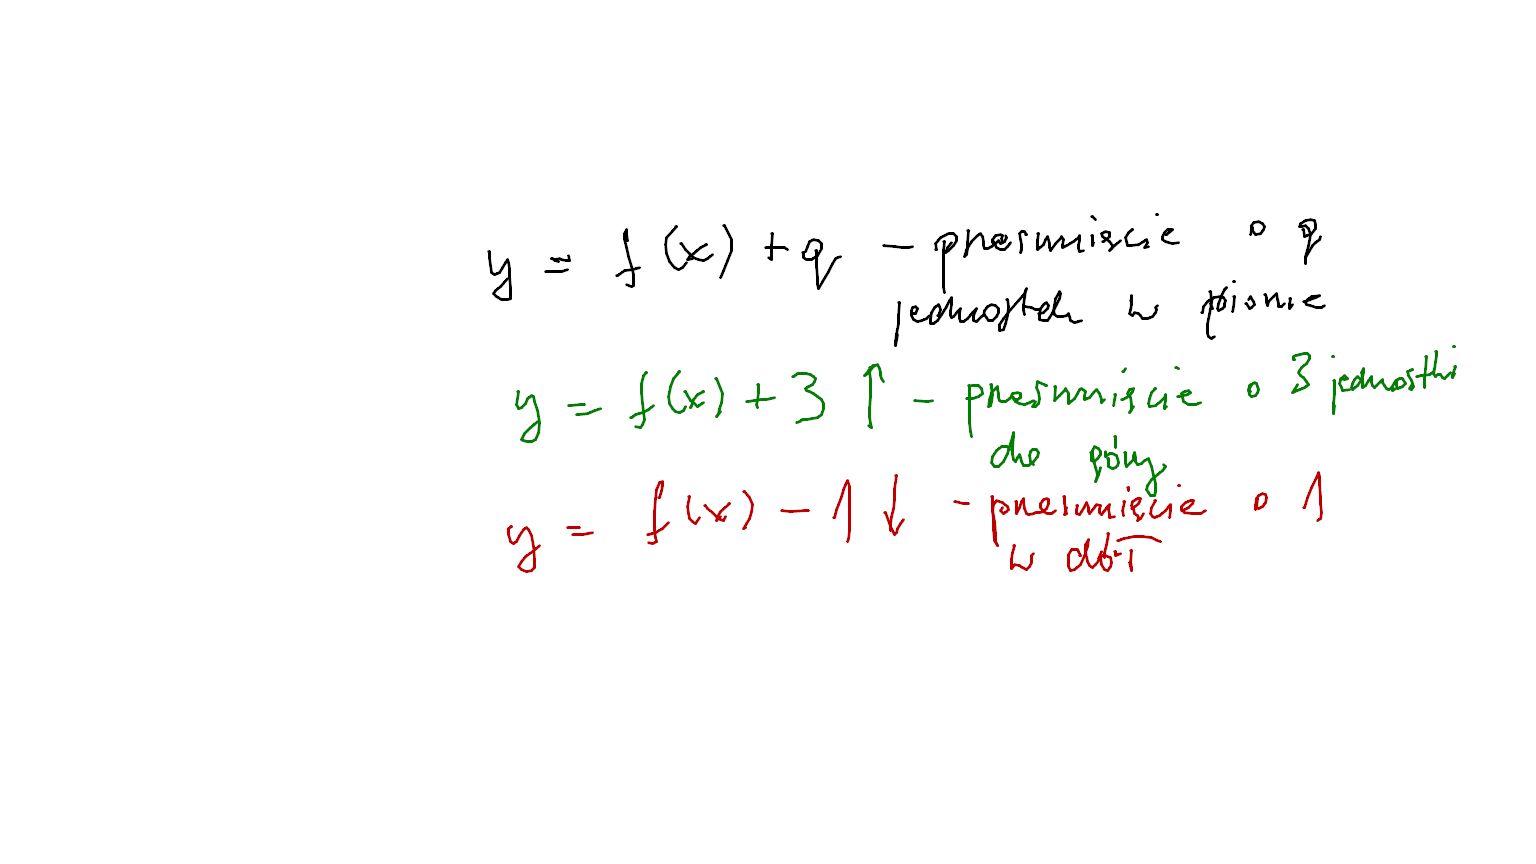 y = f(x) + q – przesunięcie o q
jednostek w pionie
y = f(x) + 3 ↑ – przesunięcie o 3 jednostki
do góry
y = f(x) – 1 ↓ – przesunięcie o 1
w dół